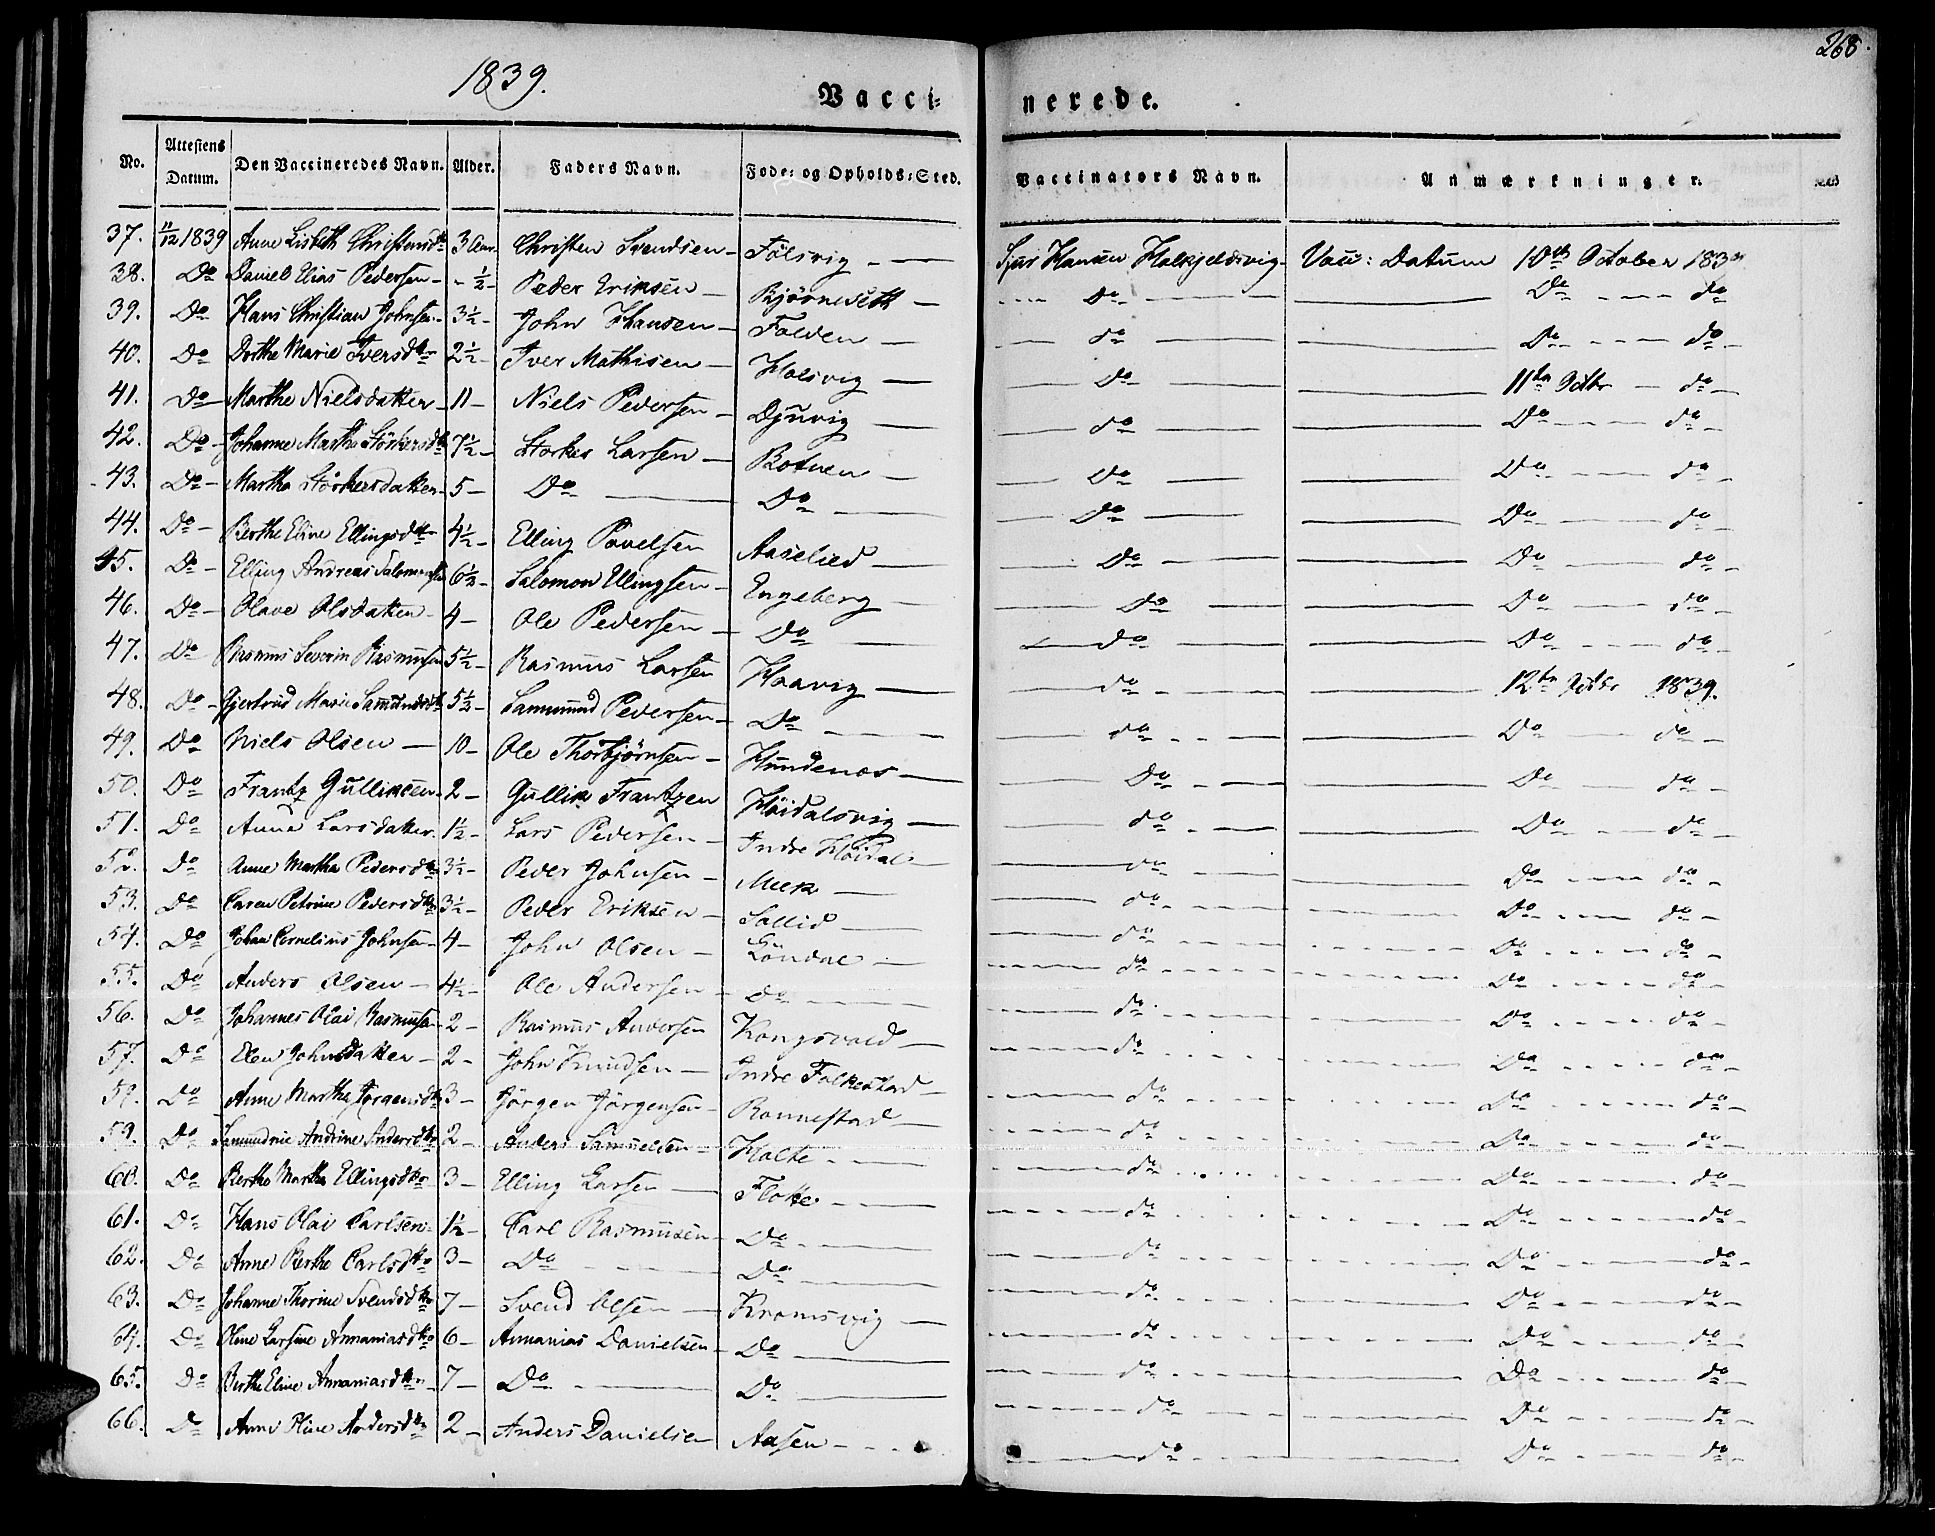 268.
1839.
Vacci- nerede.
No. Attestens Datum. Den Vaccineredes Navn. Alder. Faders Navn. Føde- og Opholds-Sted. Vaccinators Navn. Anmærkninger.
37. 11/12 1839 Anne Lisbeth Christensdtr 3 Christen Svendsen Fölsvig Hansen Holkjeldsvig Vacc: Datum 10de October 1839
38. Do Daniel Elias Pedersen - ½ - Peder Eriksen Bjørnesett Do Do do
39. Do Hans Christian Johnsen 3½ John Hansen Folden do Do do
40. Do Dorthe Marie Iversdtr 2½ Iver Mathisen Holsvig Do 11te Octbr do
41. Do Marthe Nielsdatter 11 Niels Pedersen Djuvig do Do do
42. Do Johanne Marthe Störkersdtr 7½ Storker Larsen Botnen Do Do do
43. Do Marthe Störkersdatter 5 Do Do Do Do do
44. Do Berthe Eline Ellingsdtr 4½ Elling Povelsen Aaselied Do Do do
45. Do Elling Andreas Salomonsen 6½ Salomon Ellingsen Engeberg Do Do do
46. Do Olave Olsdatter 4 Ole Pedersen Do do Do do
47. Do Rasmus Severin Rasmussen 5½ Rasmus Larsen Haavig do 12te Octbr 1839.
48. Do Gjertrud Marie Samundsdtr 5½ Sammund Pedersen Do do Do do
49. Do Niels Olsen 10 Ole Thorbjörnsen Hundenæs Do Do do
50. Do Frantz Gulliksen 2 Gullik Frantzen Höidalsvig do Do do
51. Do Anne Larsdatter 1½ Lars Pedersen Indre Höidal do Do do
52. Do Anne Martha Pedersdtr 3½ Peder Johnsen Meek do Do do
53. Do Caren Petrine Pedersdtr 3½ Peder Eriksen Sollid do Do do
54. Do Johan Cornelius Johnsen 4 John Olsen Löndal do Do do
55. Do Anders Olsen 4½ Ole Andersen Do do Do do
56. Do Johannes Olai Rasmussen 2 Rasmus Andersen Kongsvold do Do do
57. Do Elen Johnsdatter 2 John Knudsen Indre Folkestad do Do do
59. Do Anne Marthe Jörgensdtr 3 Jörgen Jörgensen Ronnestad do Do do
59. Do Samundrie Andrine Andersdtr 2 Anders Samuelsen Holte do Do do
60. Do Berthe Marthe Ellingsdtr 3 Elling Larsen Flote do Do do
61. Do Hans Olai Carlsen 1½ Carl Rasmussen Do do Do do
62. Do Anne Berthe Carlsdtr 3 Do Do do Do do
63. Do Johanne Thorine Svendsdtr 7 Svend Olsen Kromsvig do Do do
64. Do Oline Larsine Annaniasdtr 6 Annanias Danielsen Do do Do do
65. Do Berthe Eline Annaniasdtr 7 Do Do do Do do
66. Do Anne Oline Andersdtr 2 Anders Danielsen Aasen do Do do